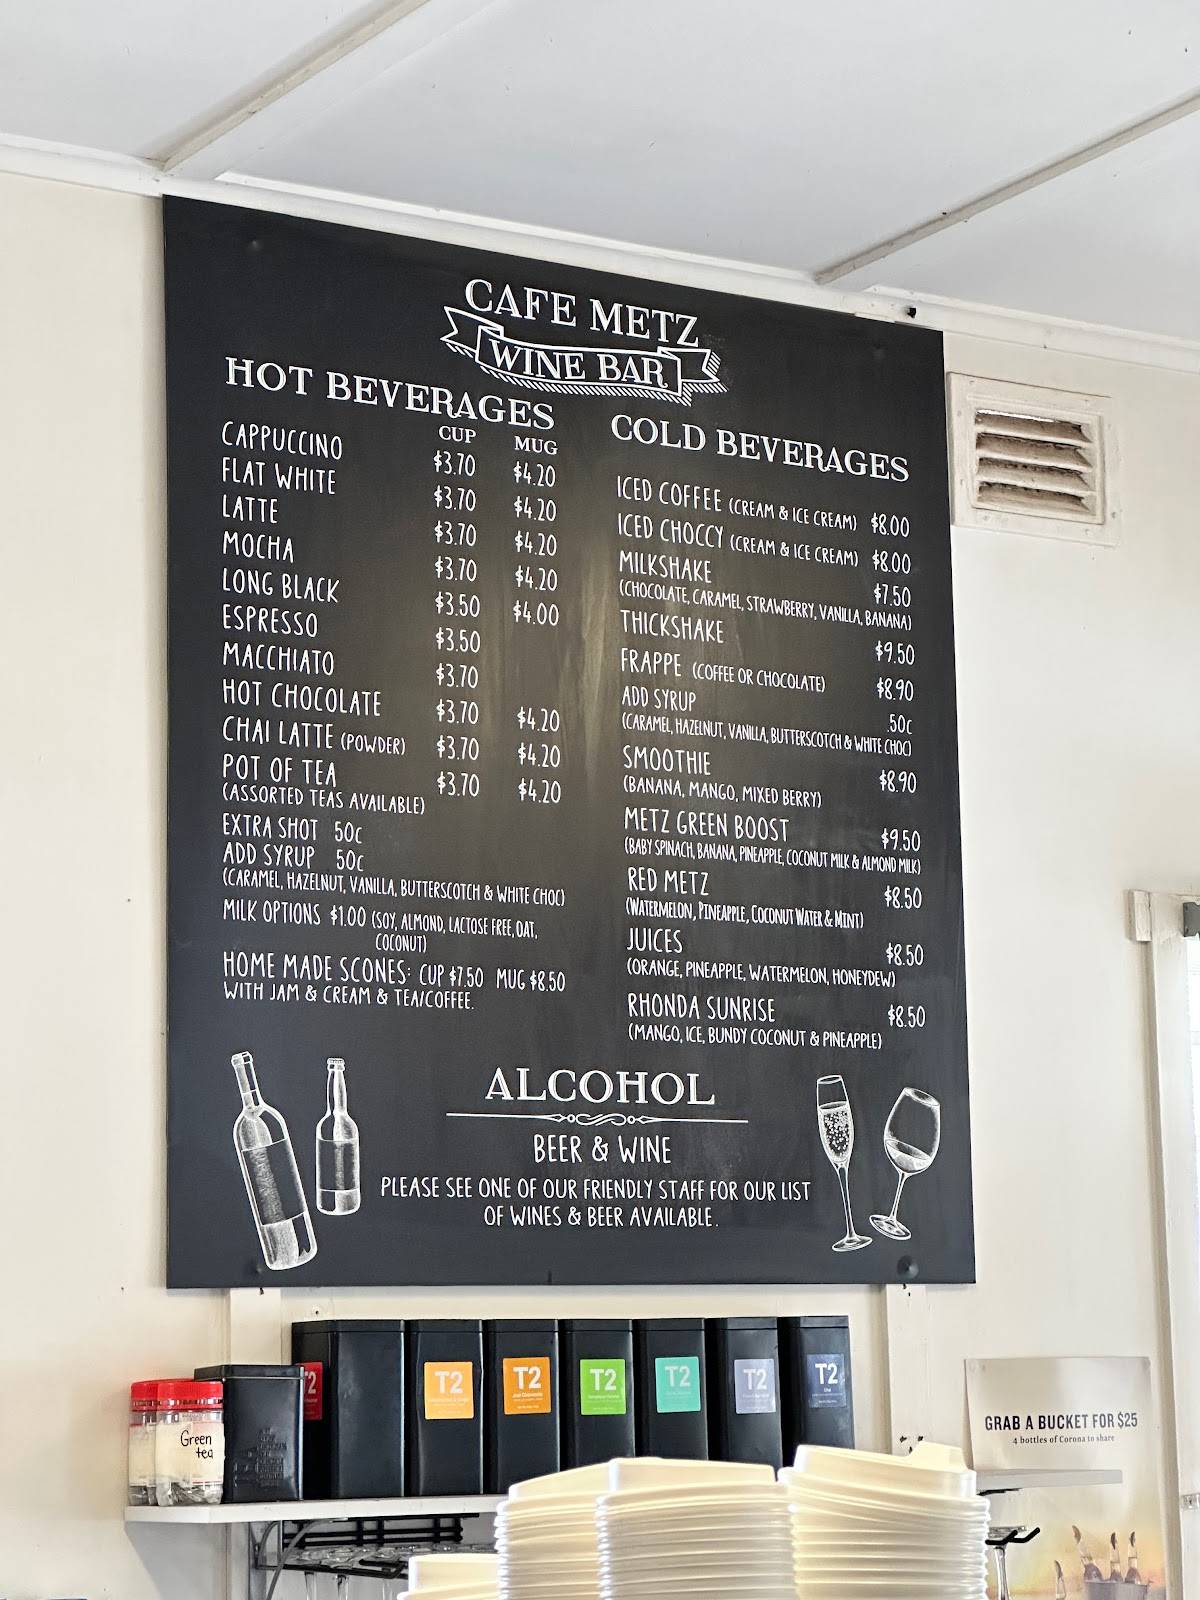 CAFE METZ
WINE BAR
HOT BEVERAGES
CUP MUG
CAPPUCCINO $3.70 $4.20
FLAT WHITE $3.70 $4.20
LATTE $3.70 $4.20
MOCHA $3.70 $4.20
LONG BLACK $3.50 $4.00
ESPRESSO $3.50
MACCHIATO $3.70
HOT CHOCOLATE $3.70 $4.20
CHAI LATTE (POWDER) $3.70 $4.20
POT OF TEA $3.70 $4.20
(ASSORTED TEAS AVAILABLE)
EXTRA SHOT 50c
ADD SYRUP 50c
(CARAMEL, HAZELNUT, VANILLA, BUTTERSCOTCH & WHITE CHOC)
MILK OPTIONS $1.00 (SOY, ALMOND, LACTOSE FREE, OAT,
COCONUT)
HOME MADE SCONES: CUP $7.50 MUG $8.50
WITH JAM & CREAM & TEA/COFFEE.
COLD BEVERAGES
ICED COFFEE (CREAM & ICE CREAM) $8.00
ICED CHOCCY (CREAM & ICE CREAM) $8.00
MILKSHAKE $7.50
(CHOCOLATE, CARAMEL, STRAWBERRY, VANILLA, BANANA)
THICKSHAKE $9.50
FRAPPE (COFFEE OR CHOCOLATE) $8.90
ADD SYRUP .50c
(CARAMEL, HAZELNUT, VANILLA, BUTTERSCOTCH & WHITE CHOC)
SMOOTHIE $8.90
(BANANA, MANGO, MIXED BERRY)
METZ GREEN BOOST $9.50
(BABY SPINACH, BANANA, PINEAPPLE, COCONUT MILK & ALMOND MILK)
RED METZ $8.50
(WATERMELON, PINEAPPLE, COCONUT WATER & MINT)
JUICES $8.50
(ORANGE, PINEAPPLE, WATERMELON, HONEYDEW)
RHONDA SUNRISE $8.50
(MANGO, ICE, BUNDY COCONUT & PINEAPPLE)
ALCOHOL
BEER & WINE
PLEASE SEE ONE OF OUR FRIENDLY STAFF FOR OUR LIST
OF WINES & BEER AVAILABLE.
T2 T2 T2 T2 T2 T2
Green
tea
GRAB A BUCKET FOR $25
4 bottles of Corona to share